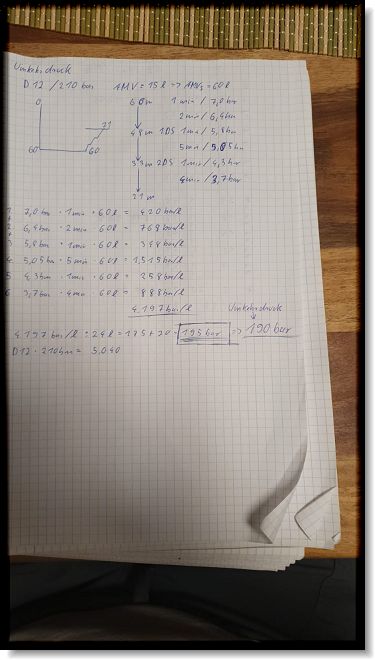 Umkehrdruck
D12 / 210 bar AMV = 15 l => AMV₂ = 60 l
0 60m 1min / 7,0 bar
2min / 6,4 bar
21 48m 1DS 1min / 5,8 bar
60 60 5min / 5,05 bar
33m 2DS 1min / 4,3 bar
4min / 3,7 bar
21m
1 7,0 bar · 1min · 60 l = 420 bar/l
+
2 6,4 bar · 2min · 60 l = 768 bar/l
+
3 5,8 bar · 1min · 60 l = 348 bar/l
4 5,05 bar · 5min · 60 l = 1.515 bar/l
5 4,3 bar · 1min · 60 l = 258 bar/l
6 3,7 bar · 4min · 60 l = 888 bar/l
4.197 bar/l Umkehrdruck
4.197 bar/l : 24 l = 175 + 20 = 195 bar => 190 bar
D12 · 210 bar = 5.040